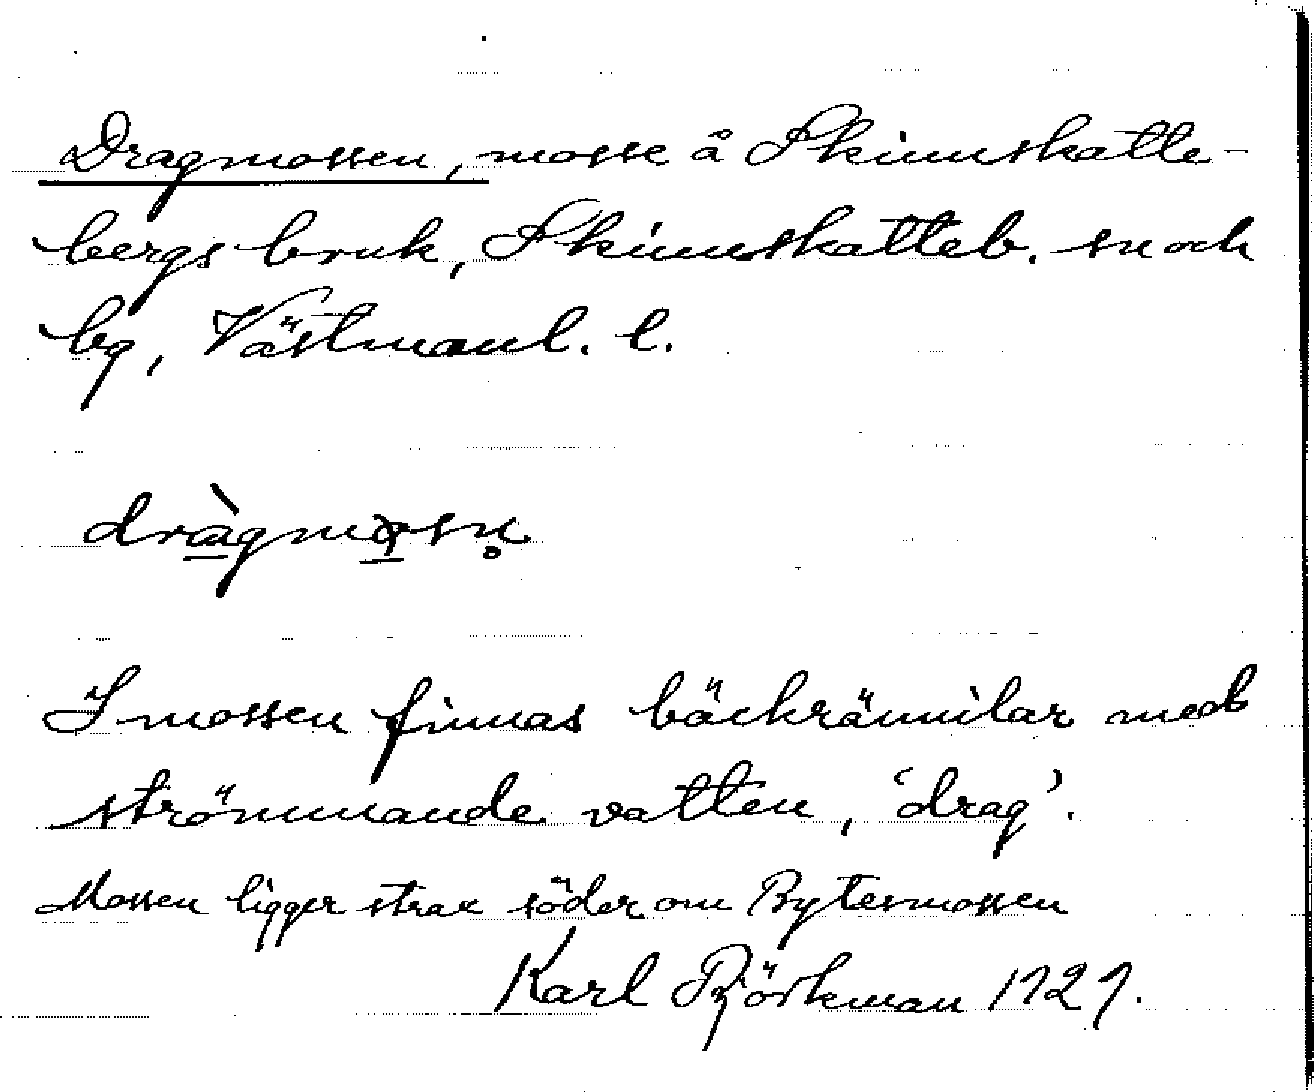 Dragmossen, mosse å Skinnskatte-
bergs bruk, Skinnskatteb. sn och
bg, Västmanl. l.
dràgmosn̥
I mossen finnas bäckrännilar med
strömmande vatten, 'drag'.
Mossen ligger strax söder om Bytesmossen
Karl Björkman 1929.